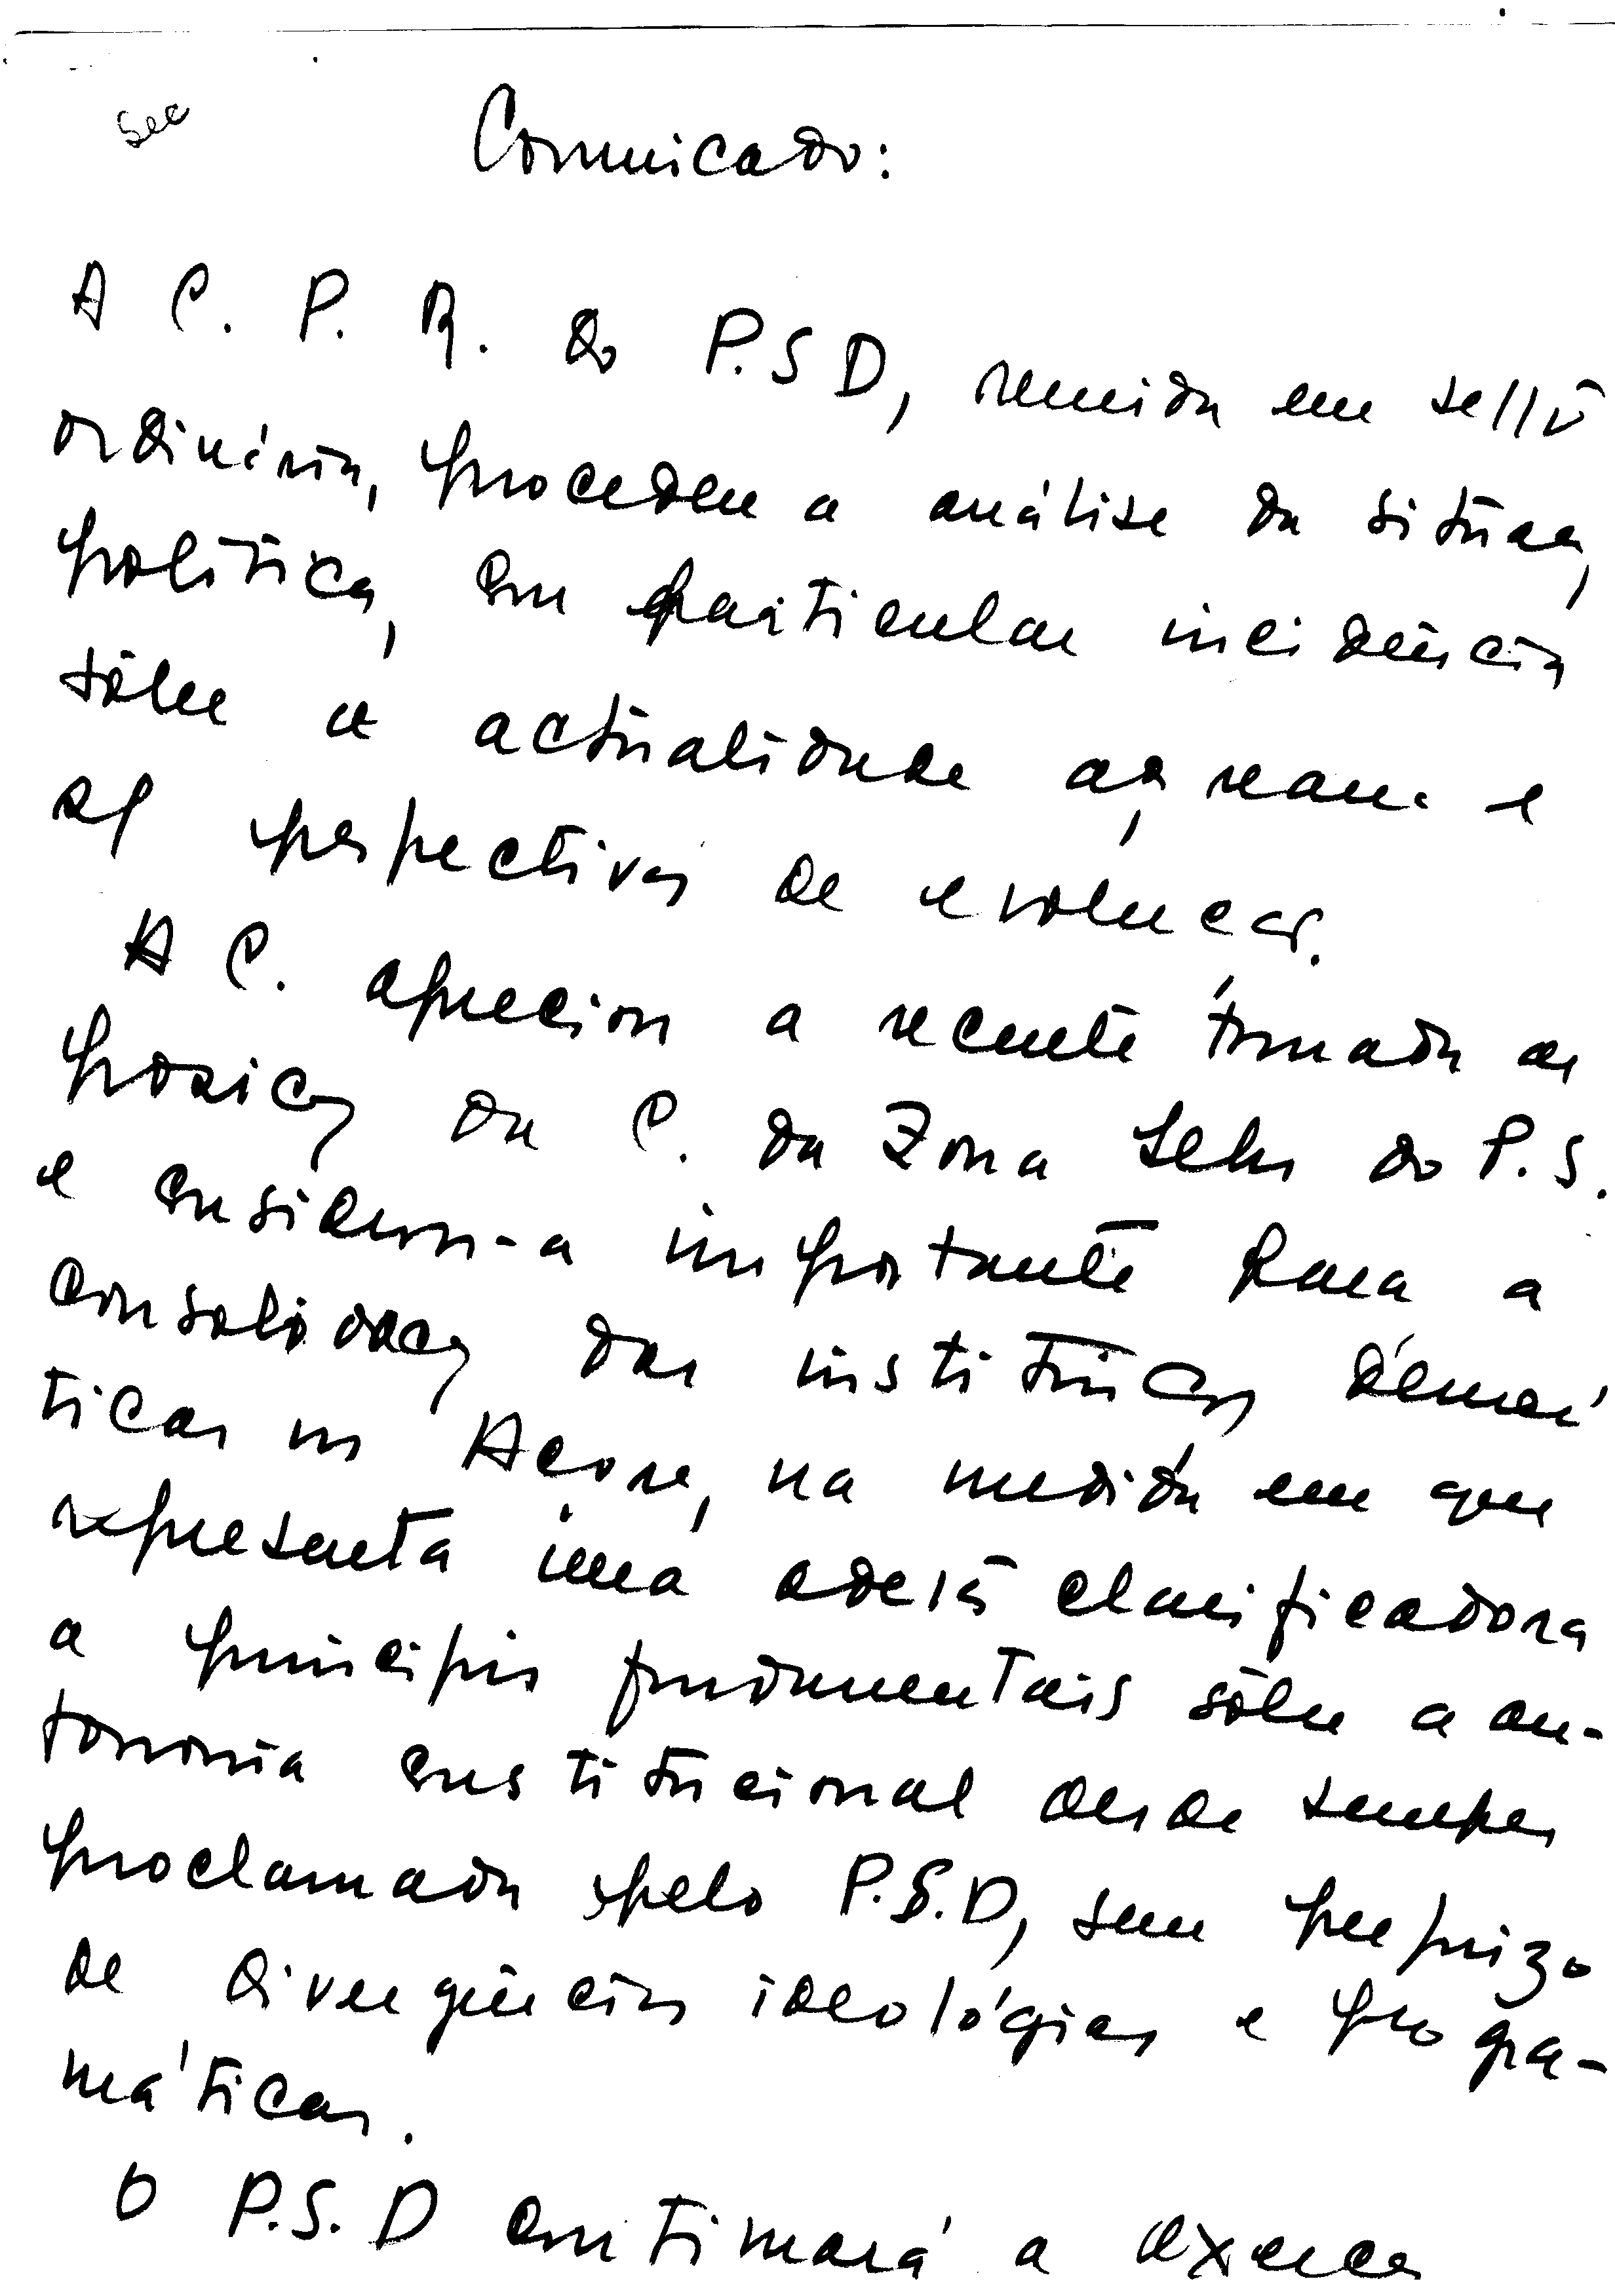 Sec
Comunicado:
A C. P. R. do P.S D, reunida em sessão
ordinária, procedeu a análise da situação
política, com particular incidência
sôbre a actualidade açoreana e
as perspectivas de evolução.
A C. apreciou a recente tomada de
posição da C. da Zona Leste do P.S.
e considerou-a importante para a
consolidação das instituições democrá
ticas nos Açores, na medida em que
representa uma adesão clarificadora
a princípios fundamentais sôbre a au-
tonomia constitucional desde sempre
proclamada pelo P.S.D, sem prejuizo
de divergências ideológicas e progra-
máticas.
O P.S.D continuará a exercer